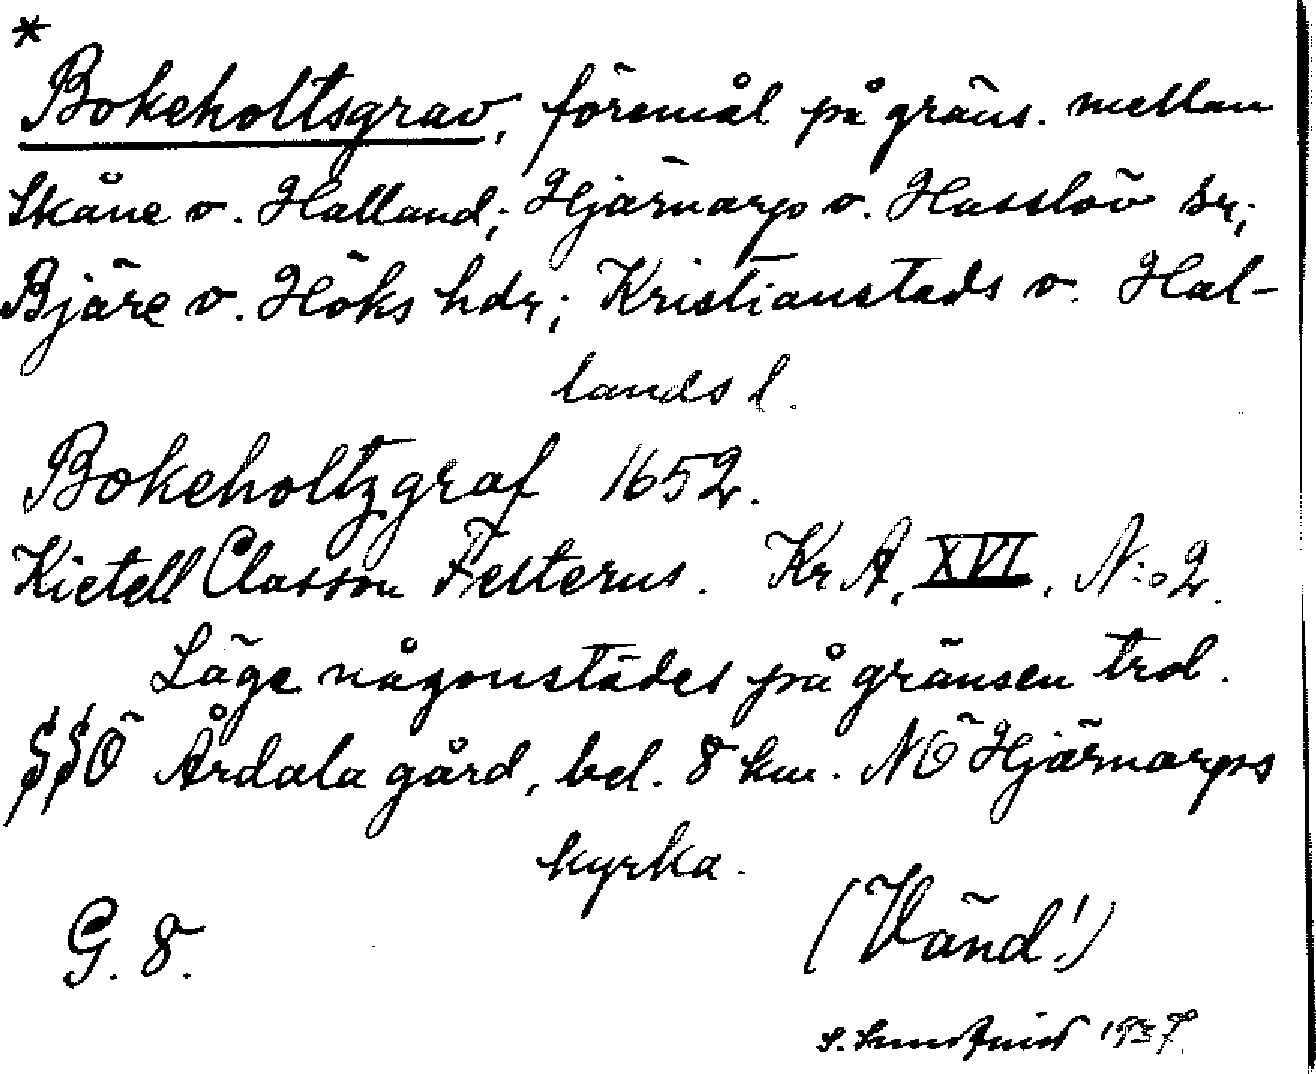 *
Bokeholtsgrav, föremål på gräns. mellan
Skåne o. Halland; Hjärnarp o. Hasslöv sn;
Bjäre o. Höks hdr; Kristianstads o. Hal-
lands l.
Bokeholtzgraf 1652.
Kietell Classon Felterus. KrA, XVI, N:o 2.
Läge någonstädes på gränsen trol.
SSÖ Årdala gård, bel. 8 km. NÖ Hjärnarps
kyrka.
G. 8.
(Vänd!)
S. 1937.